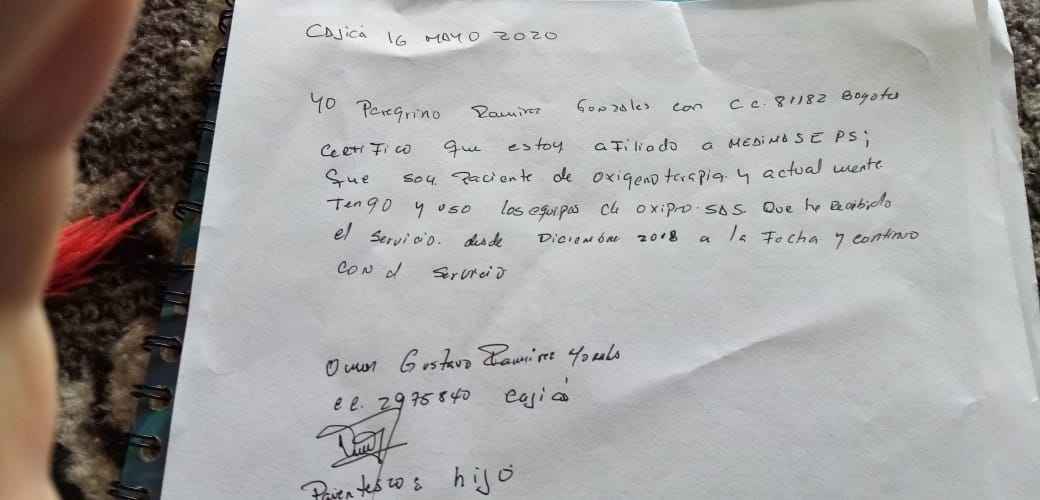 Cajica 16 MAYO 2020
YO Peregrino Ramirez Gonzales con C c. 81182 Bogota
Certifico que estoy afiliado a MEDIMAS EPS;
que soy Paciente de oxigenoterapia y actualmente
Tengo y uso los equipos de oxipro.SAS. Que he Recibido
el servicio. desde Diciembre 2018 a la Fecha y continuo
CON el servicio
Gustavo Ramirez
cc. 2975840 Cajicá
Parentesco: hijo